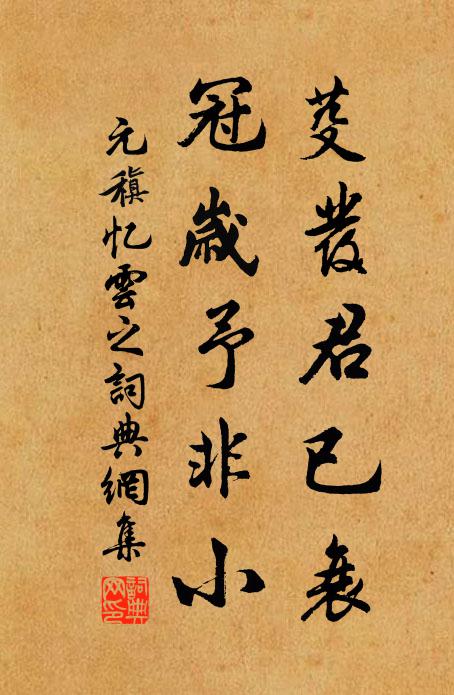 芟發君已衰
冠歲予非小
元稹忆雲之詞典網集
詞典网印